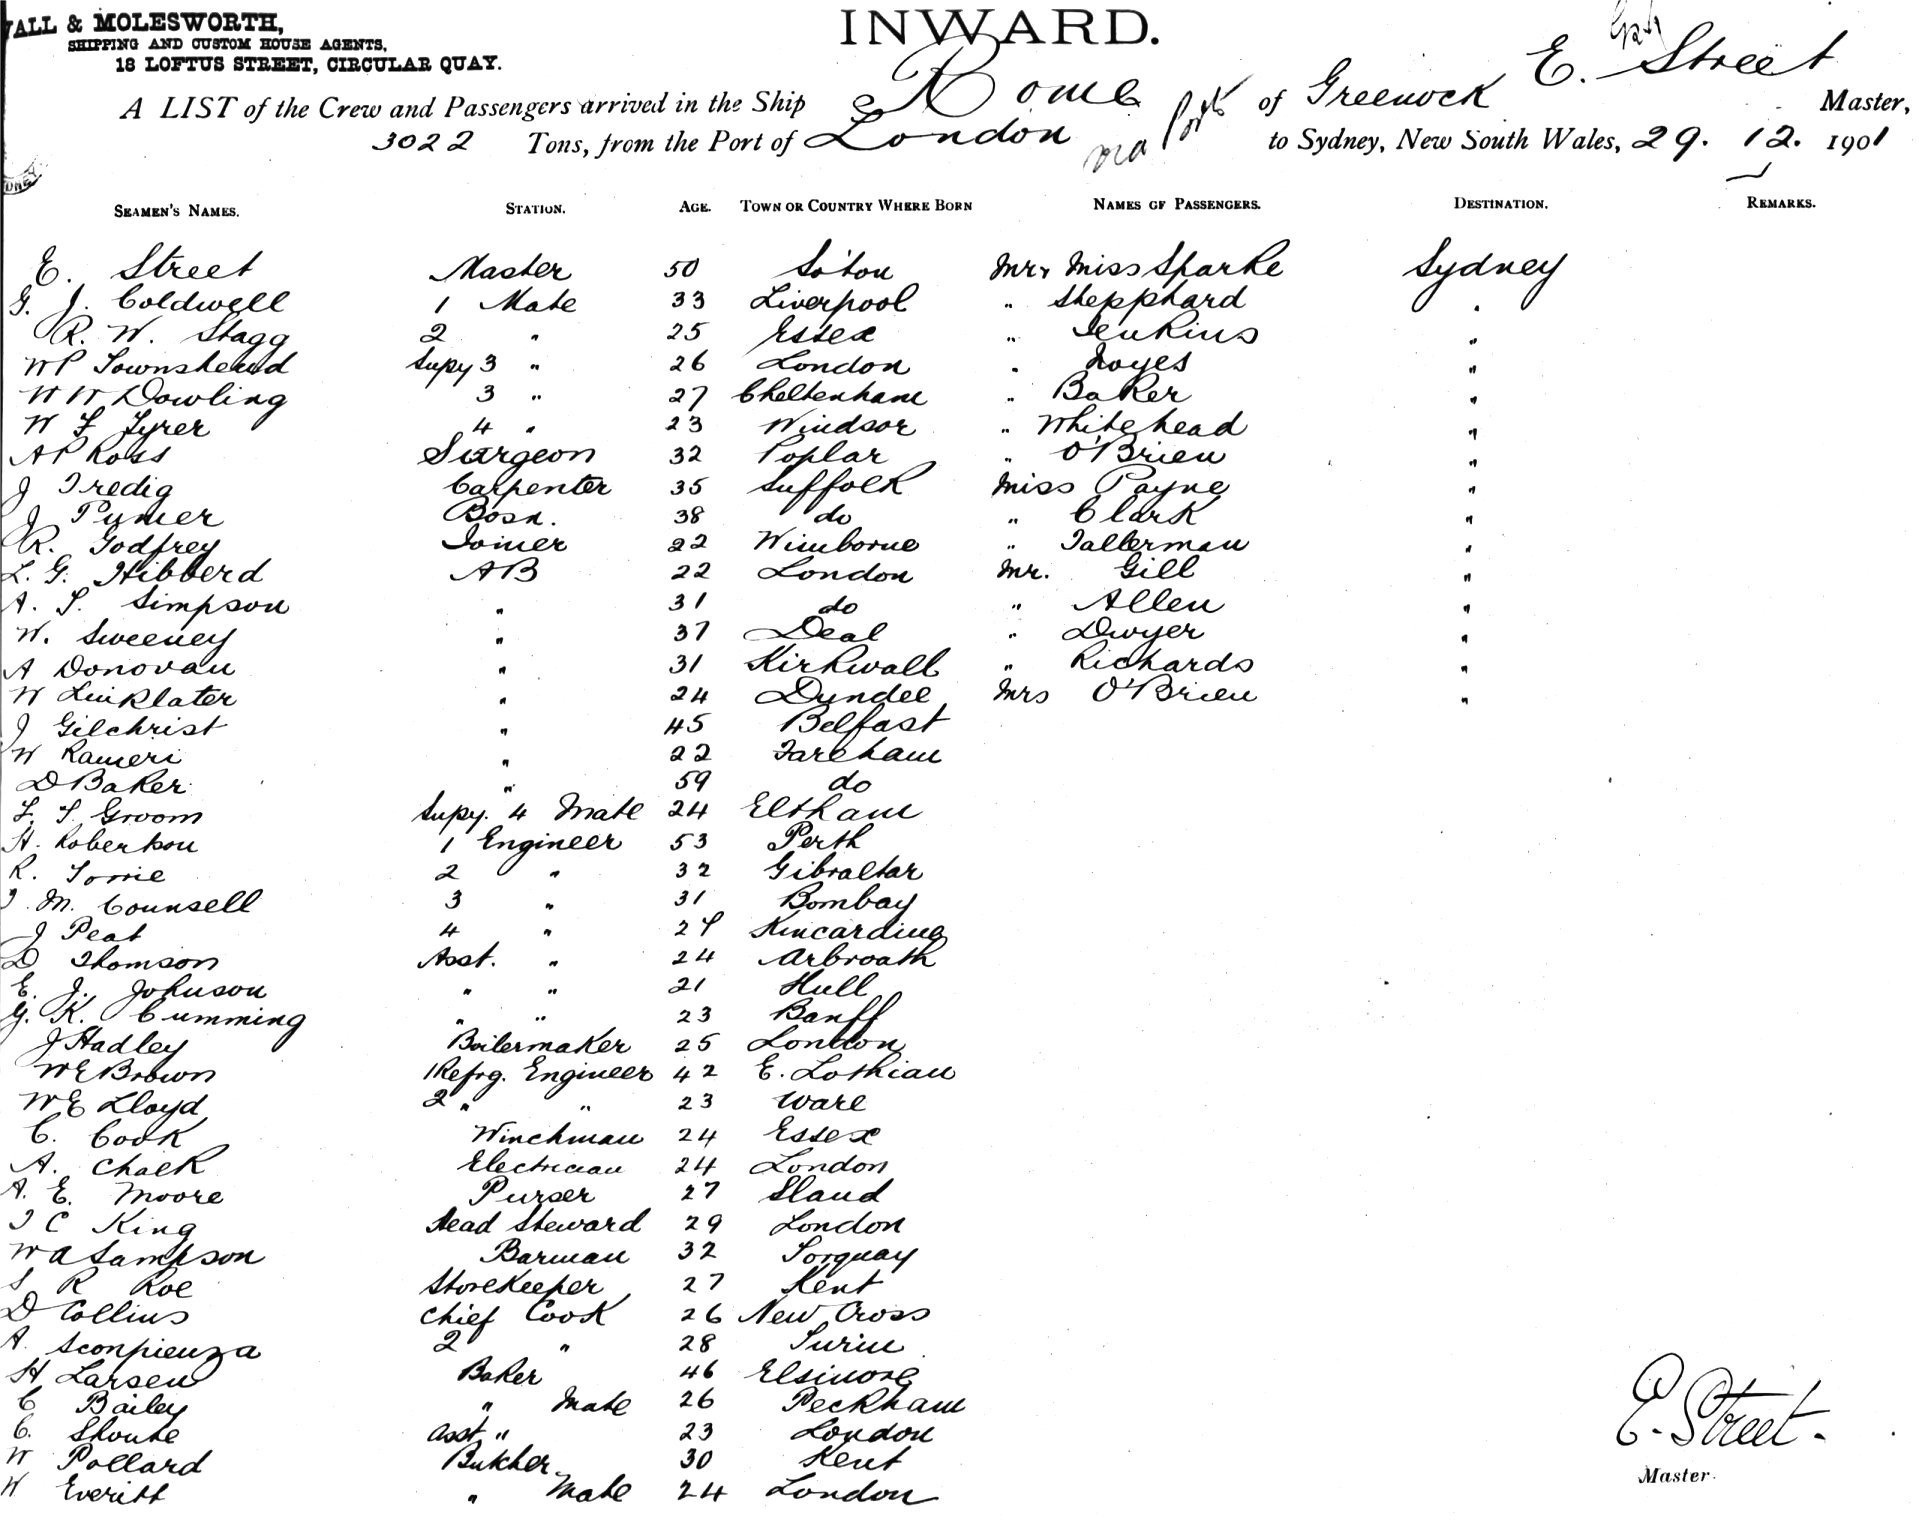 WALL & MOLESWORTH,
SHIPPING AND CUSTOM HOUSE AGENTS,
18 LOFTUS STREET, CIRCULAR QUAY.
INWARD.
A LIST of the Crew and Passengers arrived in the Ship Rome of Greenock E. Street Master,
3022 Tons, from the Port of London via Ports to Sydney, New South Wales, 29. 12. 1901
SEAMEN'S NAMES. STATION. AGE. TOWN OR COUNTRY WHERE BORN NAMES OF PASSENGERS. DESTINATION. REMARKS.
E. Street Master 50 So'ton Mr, Miss Sparke Sydney
G. J. Coldwell 1 Mate 33 Liverpool " Shepphard "
R. W. Stagg 2 " 25 Essex " Jenkins "
W P Townshend Supy 3 " 26 London " Noyes "
W W Dowling 3 " 27 Cheltenham " Baker "
W F Tyrer 4 " 23 Windsor " Whitehead "
A P Ross Surgeon 32 Poplar " O'Brien "
J Tredig Carpenter 35 Suffolk Miss Payne "
J Pymer Bosn. 38 do " Clark "
R. Godfrey Joiner 22 Wimborne " Tallerman "
L. G. Hibberd AB 22 London Mr. Gill "
A. T. Simpson " 31 do " Allen "
W. Sweeney " 37 Deal " Dwyer "
A Donovan " 31 Kirkwall " Richards "
W Linklater " 24 Dundee Mrs O'Brien "
J Gilchrist " 45 Belfast
W Rameri " 22 Fareham
D Baker " 59 do
F. T. Groom Supy. 4 Mate 24 Eltham
H. Robertson 1 Engineer 53 Perth
R. Torrie 2 " 32 Gibraltar
J. M. Counsell 3 " 31 Bombay
J Peat 4 " 27 Kincardine
D Thomson Asst. " 24 Arbroath
E. J. Johnson " " 21 Hull
G. K. Cumming " " 23 Banff
J Hadley Boilermaker 25 London
W E Brown 1 Refrg. Engineer 42 E. Lothian
W E Lloyd 2 " " 23 Ware
C. Cook Winchman 24 Essex
A. Chalk Electrician 24 London
A. E. Moore Purser 27 Sland
J C King Head Steward 29 London
W A Sampson Barman 32 Torquay
S R Roe Storekeeper 27 Kent
D Collins Chief Cook 26 New Cross
A. Sconpienza 2 " 28 Turin
H Larsen Baker 46 Elsinore
C Bailey " Mate 26 Peckham
C. Shoute Asst " 23 London
W Pollard Butcher 30 Kent
W Everitt " Mate 24 London
E. Street.
Master.